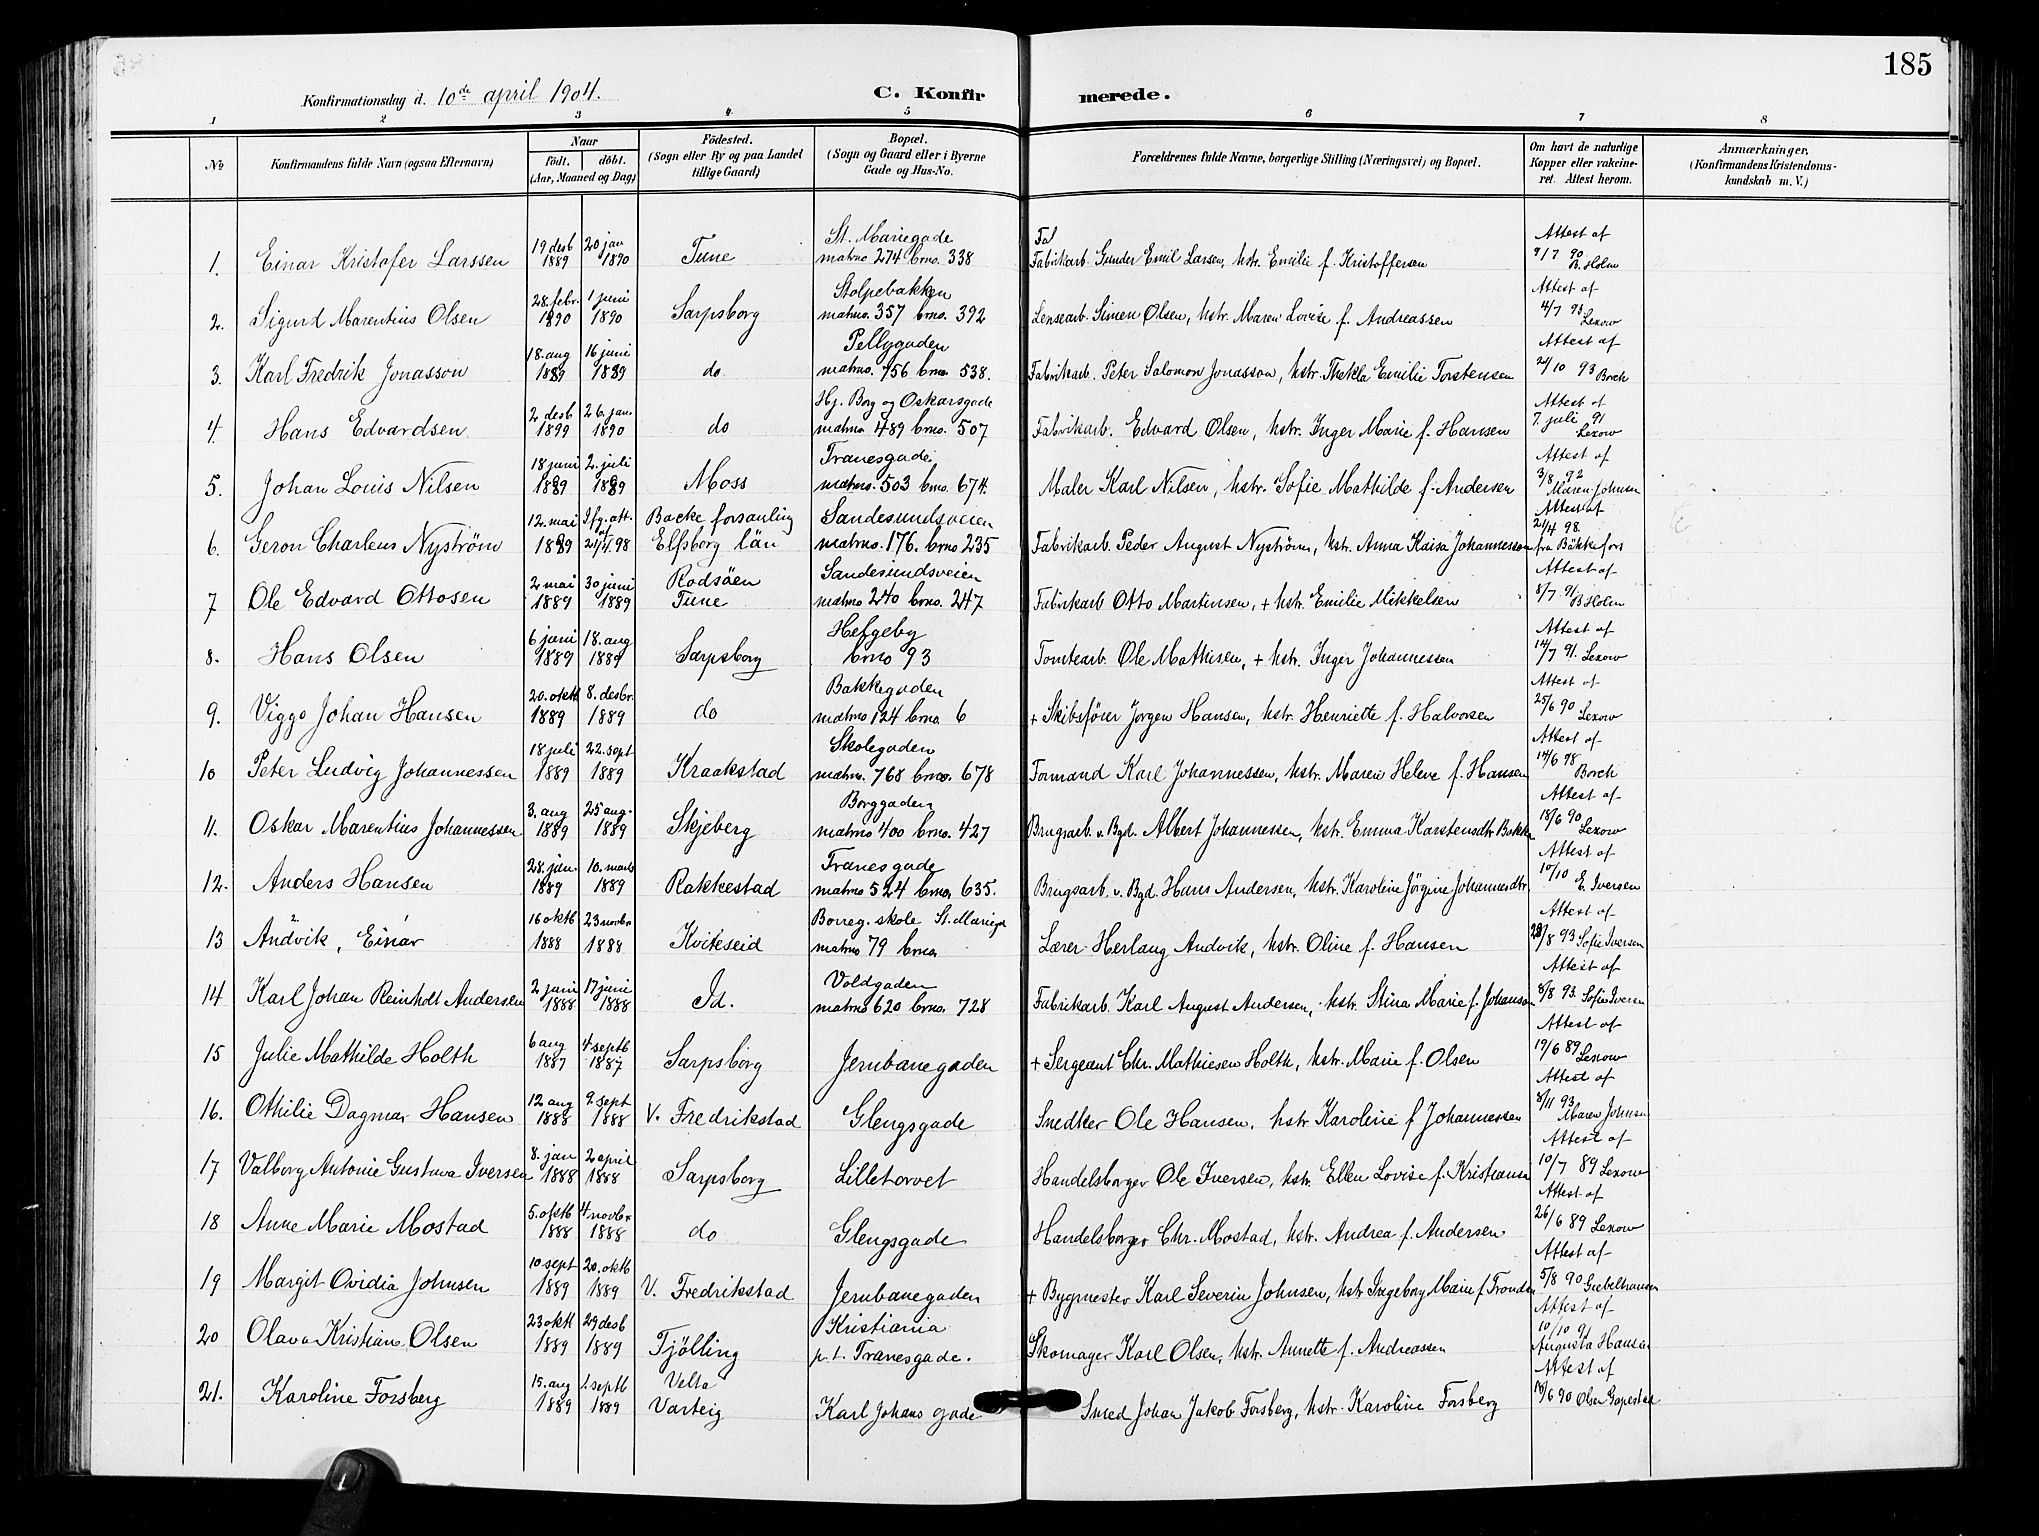 185
Konfirmationsdag d. 10de april 1904.
C. Konfirmerede.
1 2 3 4 5 6 7 8
No
Konfirmandens fulde Navn (ogsaa Efternavn)
Naar
födt. döbt.
(Aar, Maaned og Dag)
Födested.
(Sogn eller By og paa Landet
tillige Gaard)
Bopæl.
(Sogn og Gaard eller i Byerne
Gade og Hus-No.
Forældrenes fulde Navne, borgerlige Stilling (Næringsvei) og Bopæl.
Om havt de naturlige
Kopper eller vakcine-
ret. Attest herom.
Anmærkninger.
(Konfirmandens Kristendoms-
kundskab m. V.)
19 desb 20 jan St. Mariegade Fal Attest af
1. Einar Kristofer Larssen 1889 1890 Tune matrno 274 brno. 338 Fabrikarb. Gunder Emil Larsen, hstr. Emilie f. Kristoffersen 9/7 90 B. Holm
28. febr. 1 juni Stolpebakken Attest af
2. Sigurd Marentius Olsen 1890 1890 Sarpsborg matrno. 357 brno. 392 Lensearb. Simen Olsen, hstr. Maren Lovise f. Andreassen 4/7 93 Lexow
18. aug 16 juni Pellygaden Attest af
3. Karl Fredrik Jonasson 1889 1889 do matrno. 756 brno 538. Fabrikarb. Peter Salomon Jonasson, hstr. Thekla Emilie Torstensen 24/10 93 Borch
2 desb 26. jan. Hj. Borg og Oskarsgade Attest af
4. Hans Edvardsen 1899 1890 do matrno 489 brno. 507 Fabrikarb. Edvard Olsen, hstr. Inger Marie f. Hansen 7. juli 91 Lexow
18 juni 2. juli Tranesgade Attest af
5. Johan Louis Nilsen 1889 1889 Moss matrno. 503 brno. 674. Maler Karl Nilsen, hstr. Sofie Mathilde f. Andersen 3/8 92 Maren Johnsen
12. mai Ifg. att. Backe forsamling Sandesundsveien Attest af
6. Geron Charleus Nyström 1889 21/4. 98 Elfsborg län matrno. 176. brno. 235 Fabrikarb. Peder August Nyström, hstr. Anna Kaisa Johannesson 21/4 98. fra Bäkkefors
2 mai 30 juni Rodsöen Sandesundsveien Attest af
7 Ole Edvard Ottosen 1889 1889 Tune matrno 240 brno. 247 Fabrikarb Otto Martinsen, + hstr. Emilie Mikkelsen 8/7 91 B. Holm
6 juni 18. aug Hefgeby Attest af
8. Hans Olsen 1889 1889 Sarpsborg brno 93 Tomtearb. Ole Mathisen, + hstr. Inger Johannessen 14/7 91. Lexow
20. oktb 8. desbr. Bakkegaden Attest af
9. Viggo Johan Hansen 1889 1889 do matrno 124 brno. 6 + Skibsförer Jorgen Hansen, hstr. Henriette f. Halvorsen 25/6 90 Lexow
18 juli 22. sept Skolegaden Attest af
10 Peter Ludvig Johannessen 1889 1889 Kraakstad matrno. 768 brno. 678 Formand Karl Johannessen, hstr. Maren Helene f. Hansen 14/6 98 Borch
3. aug 25 aug. Borggaden Attest af
11. Oskar Marentius Johannessen 1889 1889 Skjeberg matrno 400 brno. 427 Brugsarb. v. Bgd. Albert Johannessen, hstr. Emma Karstensdtr Bakke 18/6 90 Lexow
28. jan. 10. marts Tranesgade Attest af
12. Anders Hansen 1889 1889 Rakkestad matrno 524 brno. 635. Brugsarb. v. Bgd. Hans Andersen, hstr. Karoline Jörgine Johannesdtr. 10/10 E. Iversen
16 oktb 23 novbr Borreg. skole St. Marieg. Attest af
13 Andvik, Einar 1888 1888 Kviteseid matrno 79 brno. Lærer Herlaug Andvik, hstr. Oline f. Hansen 28/8 93 Sofie Iversen
2 juni 17 juni Voldgaden Attest af
14 Karl Johan Reinholt Andersen 1888 1888 Id. matrno 620 brno. 728 Fabrikarb. Karl August Andersen, hstr. Stina Marie f. Johanson 8/8 93. Sofie Iversen
6 aug 4 septb Attest af
15 Julie Mathilde Holth 1887 1887 Sarpsborg Jernbanegaden + Sergeant Chr. Mathiesen Holth, hstr. Marie f. Olsen 19/6 89 Lexow
12 aug 9. sept Attest af
16. Othilie Dagmar Hansen 1888 1888 V. Fredrikstad Glengsgade Snedker Ole Hansen, hstr Karoline f Johannessen 8/11 93 Maren Johnsen
8. jan 2 april Attest af
17 Valborg Antonie Gustava Iversen 1888 1888 Sarpsborg Lilletorvet Handelsborger Ole Iversen, hstr. Ellen Lovise f. Kristiansen 10/7 89 Lexow
5. oktb 4. novbr Attest af
18 Anne Marie Mostad 1888 1888 do Glengsgade Handelsborger Chr. Mostad, hstr. Andrea f. Andersen 26/6 89 Lexow
10 sept 20. oktb Attest af
19 Margit Ovidia Johnsen 1889 1889 V. Fredrikstad Jernbanegaden + Bygmester Karl Severin Johnsen, hstr Ingeborg Marie f. Tronsen 5/8 90 Giebelhausen
23 oktb 29 desb Kristiania Attest af
20 Olava Kristiane Olsen 1889 1889 Tjölling p. t. Tranesgade. Skomager Karl Olsen, hstr. Annette f. Andreassen 10/10 91 Augusta Hansen
15. aug 1. septb Velta Attest af
21. Karoline Forsberg 1889 1889 Varteig Karl Johans gade Smed Johan Jakob Forsberg, hstr. Karoline Forsberg 18/6 90 Olsen Gapestad